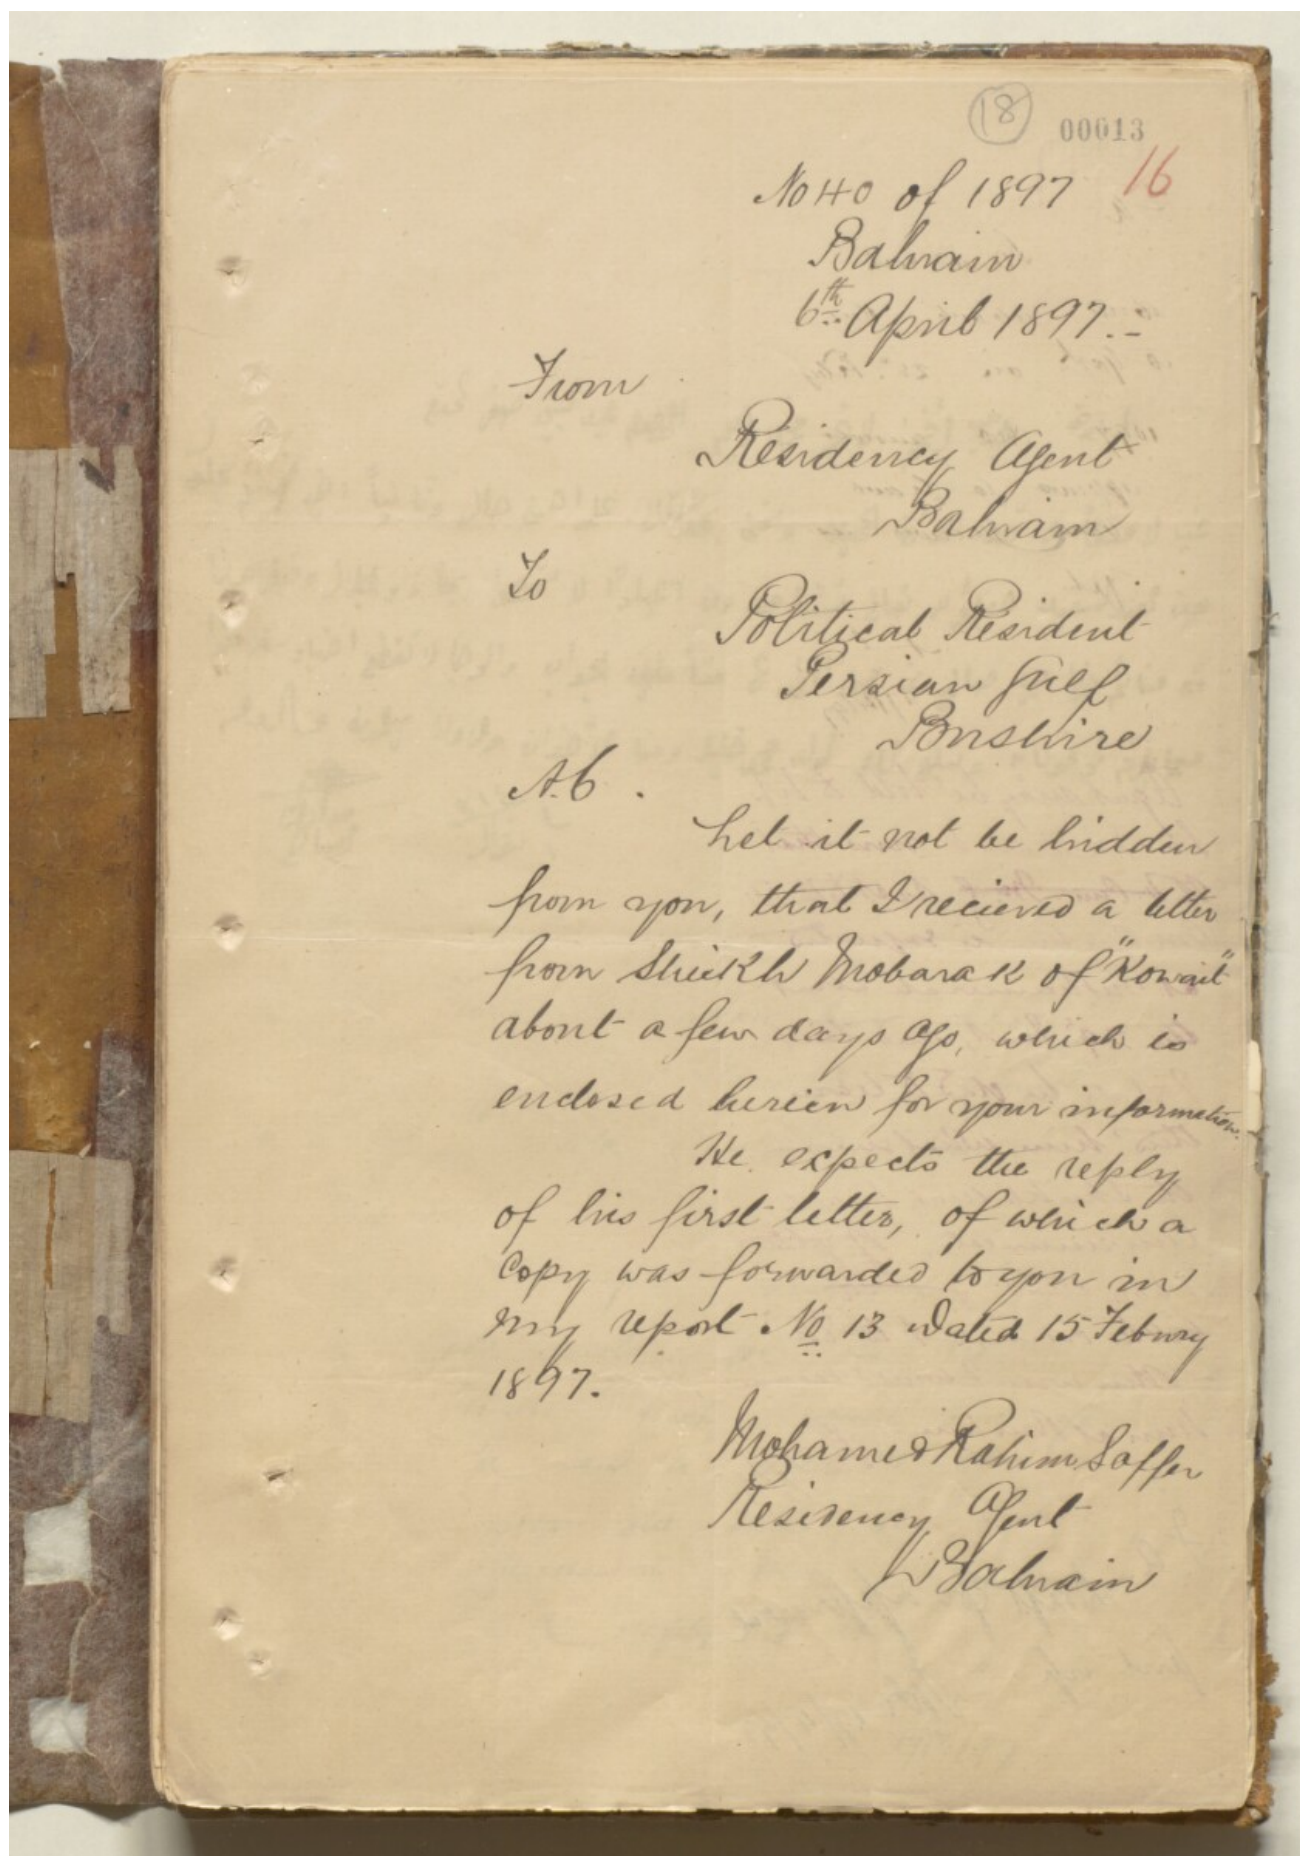 18
00013
16
No 40 of 1897
Bahrain
6th April 1897. -
From
Residency Agent
Bahrain
To
Political Resident
Persian Gulf
Bushire
A.C.
Let it not be hidden
from you, that I recieved a letter
from Sheikh Mobarak of "Kowait"
about a few days ago, which is
enclosed herein for your information.
He expects the reply
of his first letter, of which a
copy was forwarded to you in
my report No 13 Dated 15 Febury
1897.
Mohamed Rahim Saffer
Residency Agent
Bahrain